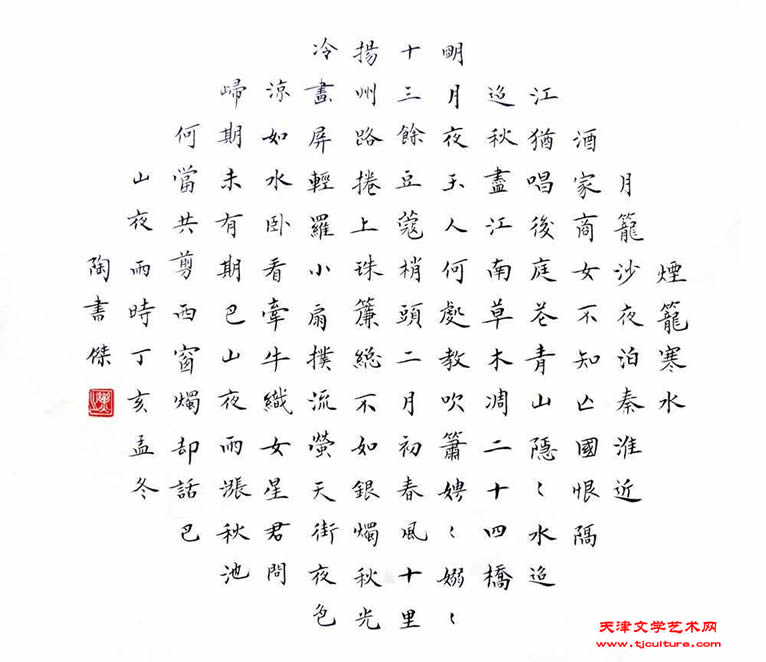 煙籠寒水
月籠沙夜泊秦淮近
酒家商女不知亾國恨隔
江猶唱後庭芲青山隱〻水迢
迢秋盡江南草木凋二十四橋
眀月夜玉人何處教吹簫娉〻嫋〻
十三餘豆蔻梢頭二月初春風十里
揚州路捲上珠簾總不如銀燭秋光
冷畫屏輕羅小扇撲流螢天街夜色
涼如水卧看牽牛織女星君問
歸期未有期巴山夜雨漲秋池
何當共剪西窗燭却話巴
山夜雨時丁亥孟冬
陶書傑
天津文学艺术网
www.tjculture.com